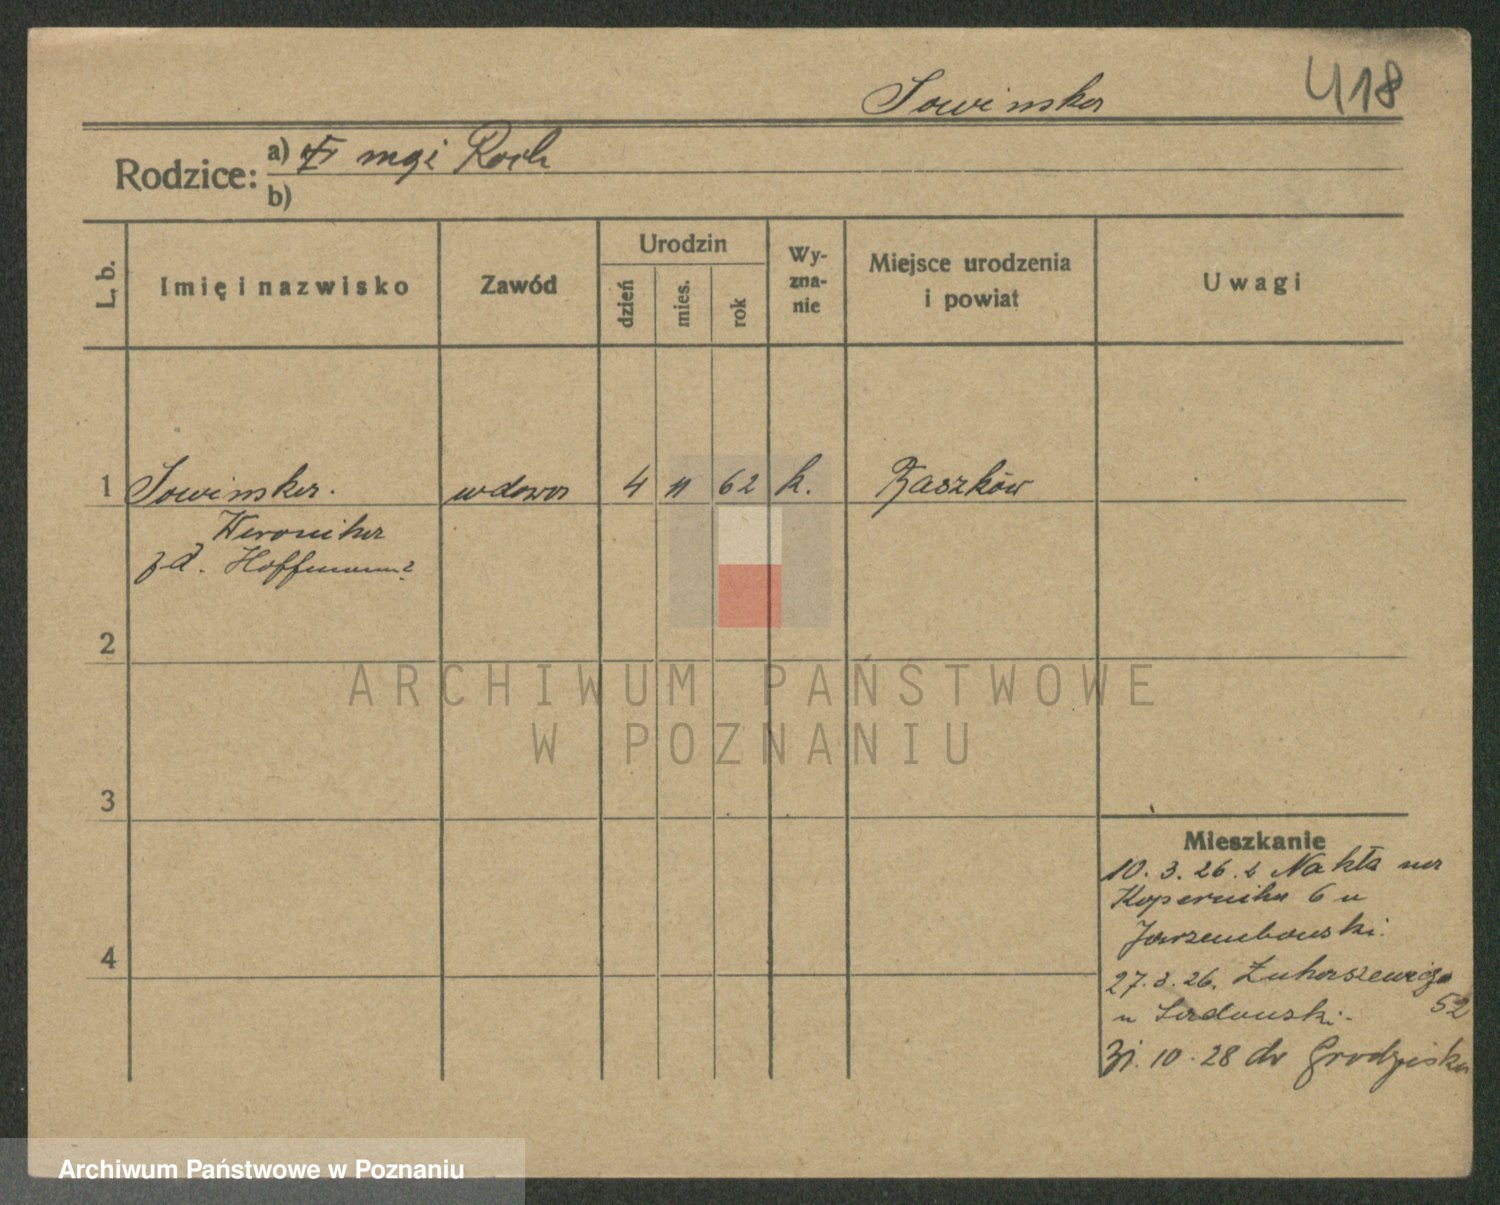 Sowinska
418
Rodzice: a) I mąż Roch
b)
L. b.
Imię i nazwisko
Zawód
Urodzin
dzień
mies.
rok
Wy-
zna-
nie
Miejsce urodzenia
i powiat
Uwagi
1 Sowinska. wdowa 4 11 62 k. Raszków
Weronika
z d. Hoffmann
2
3
4
ARCHIWUM PAŃSTWOWE
W POZNANIU
Mieszkanie
10. 3. 26. z Nakła na
Kopernika 6 u
Jarzembowski.
27. 3. 26. Łukaszewicza
52
u Sadowski.
31. 10. 28 do Grodziska
Archiwum Państwowe w Poznaniu